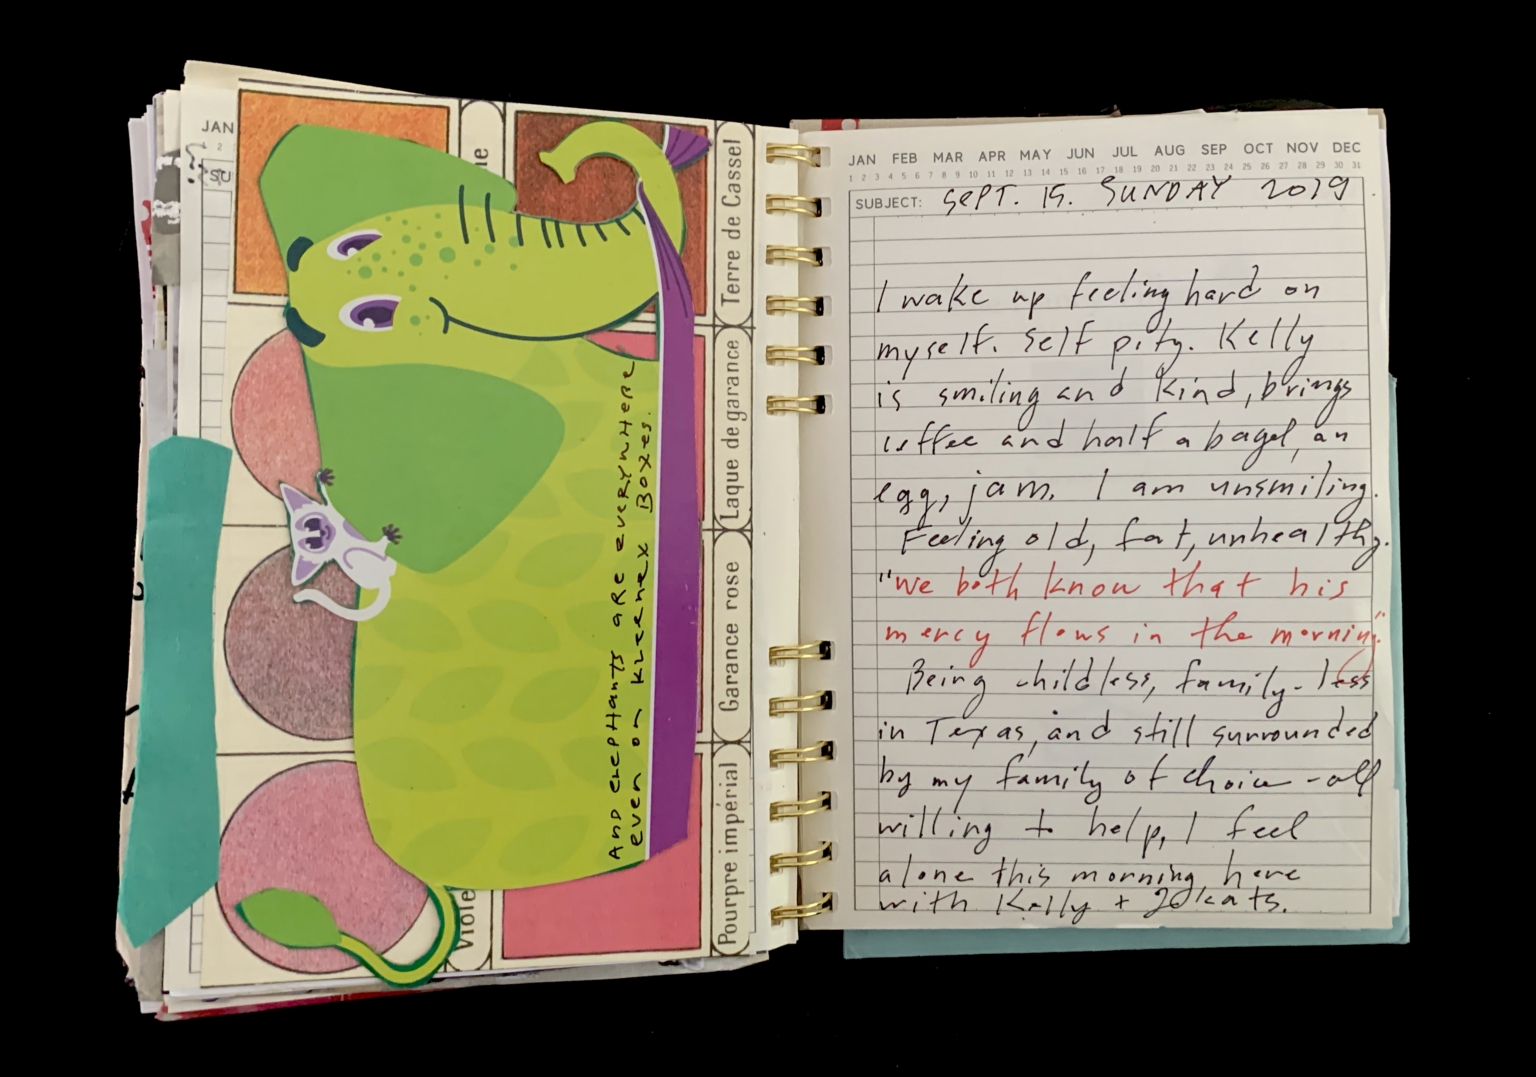 JAN
1 2
SU
ne
Terre de Cassel
Laque de garance
Garance rose
Pourpre impérial
Viole
AND ELEPHANTS ARE EVERYWHERE
EVEN ON KLEENEX BOXES.
JAN FEB MAR APR MAY JUN JUL AUG SEP OCT NOV DEC
1 2 3 4 5 6 7 8 9 10 11 12 13 14 15 16 17 18 19 20 21 22 23 24 25 26 27 28 29 30 31
SUBJECT: SEPT. 15. SUNDAY 2019
I wake up feeling hard on
myself. Self pity. Kelly
is smiling and kind, brings
coffee and half a bagel, an
egg, jam. I am unsmiling.
Feeling old, fat, unhealthy.
"We both know that his
mercy flows in the morning"
Being childless, family-less
in Texas, and still surrounded
by my family of choice - all
willing to help, I feel
alone this morning here
with Kelly + cats.